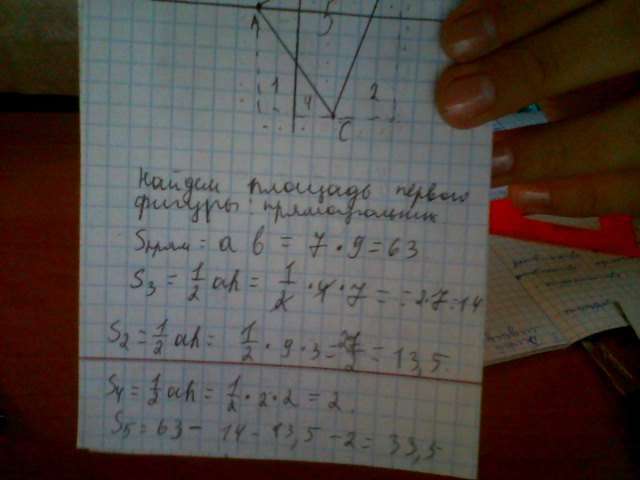 A
5
1
4
2
C
Найдем площадь первой
фигуры: прямоугольник
Sпрям = a b = 7 · 9 = 63
S₃ = 1/2 ah = 1/2 · 4 · 7 = = 2·7=14
S₂ = 1/2 ah = 1/2 · 9 · 3 = 27/2 = 13,5
S₄ = 1/2 ah = 1/2 · 2 · 2 = 2.
S₅ = 63 - 14 - 13,5 - 2 = 33,5